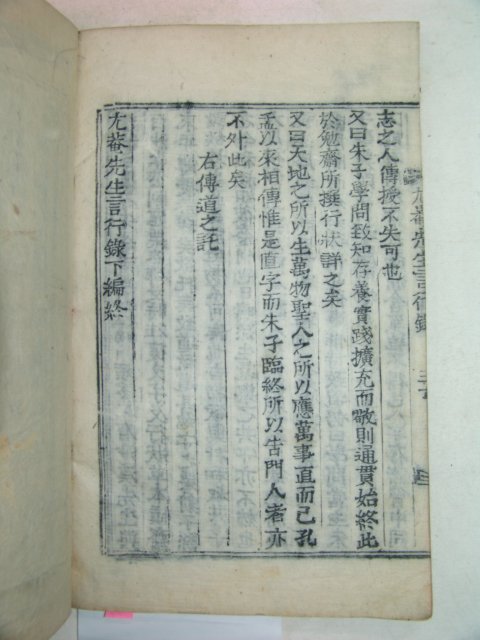 志之人傳授不失可也
又曰朱子學問致知存養實踐擴充而敬則通貫始終此
於勉齋所撰行狀詳之矣
又曰天地之所以生萬物聖人之所以應萬事直而已孔
孟以來相傳惟是直字而朱子臨終所以告門人者亦
不外此矣
右傳道之託
尤菴先生言行錄下編終